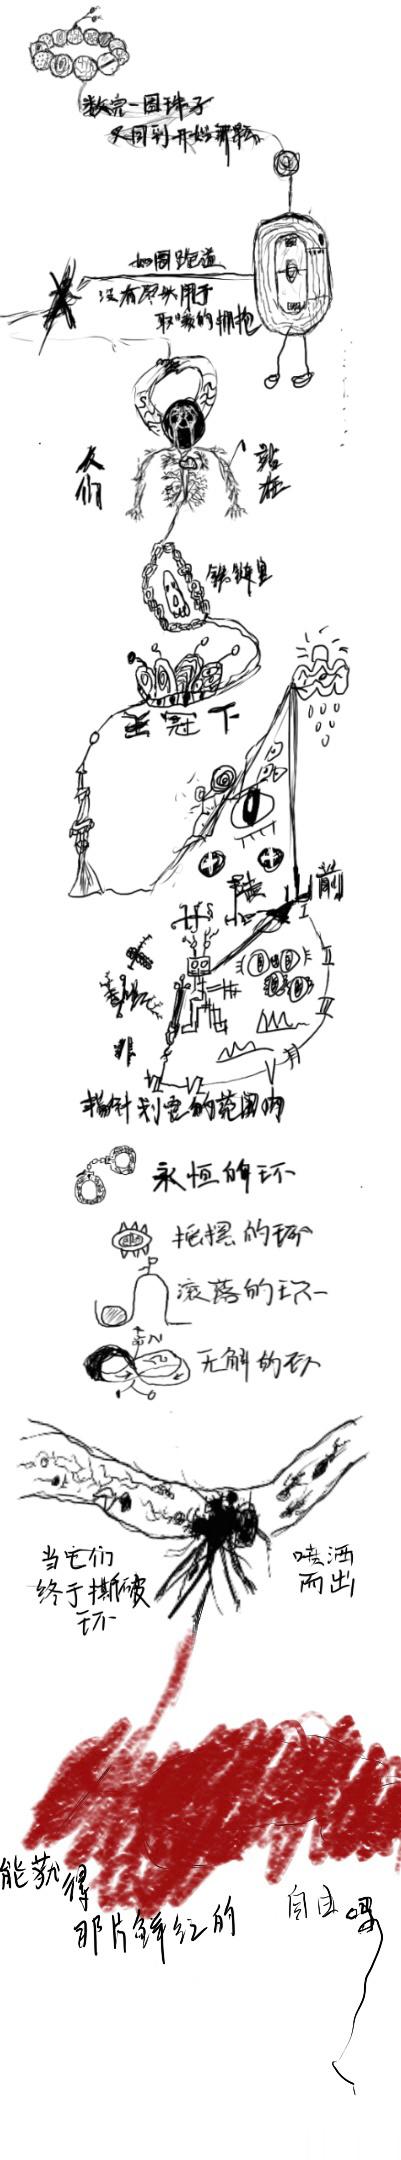 数完一圈珠子
又回到开始那颗
如同跑道
没有尽头用于
取暖的拥抱
人们
站在
铁链里
王冠下
前
非
指针划定的范围内
永恒的环
摇摆的环
滚落的环
无解的环
当它们
终于撕破
环
喷洒
而出
能获得
那片鲜红的
自由吗